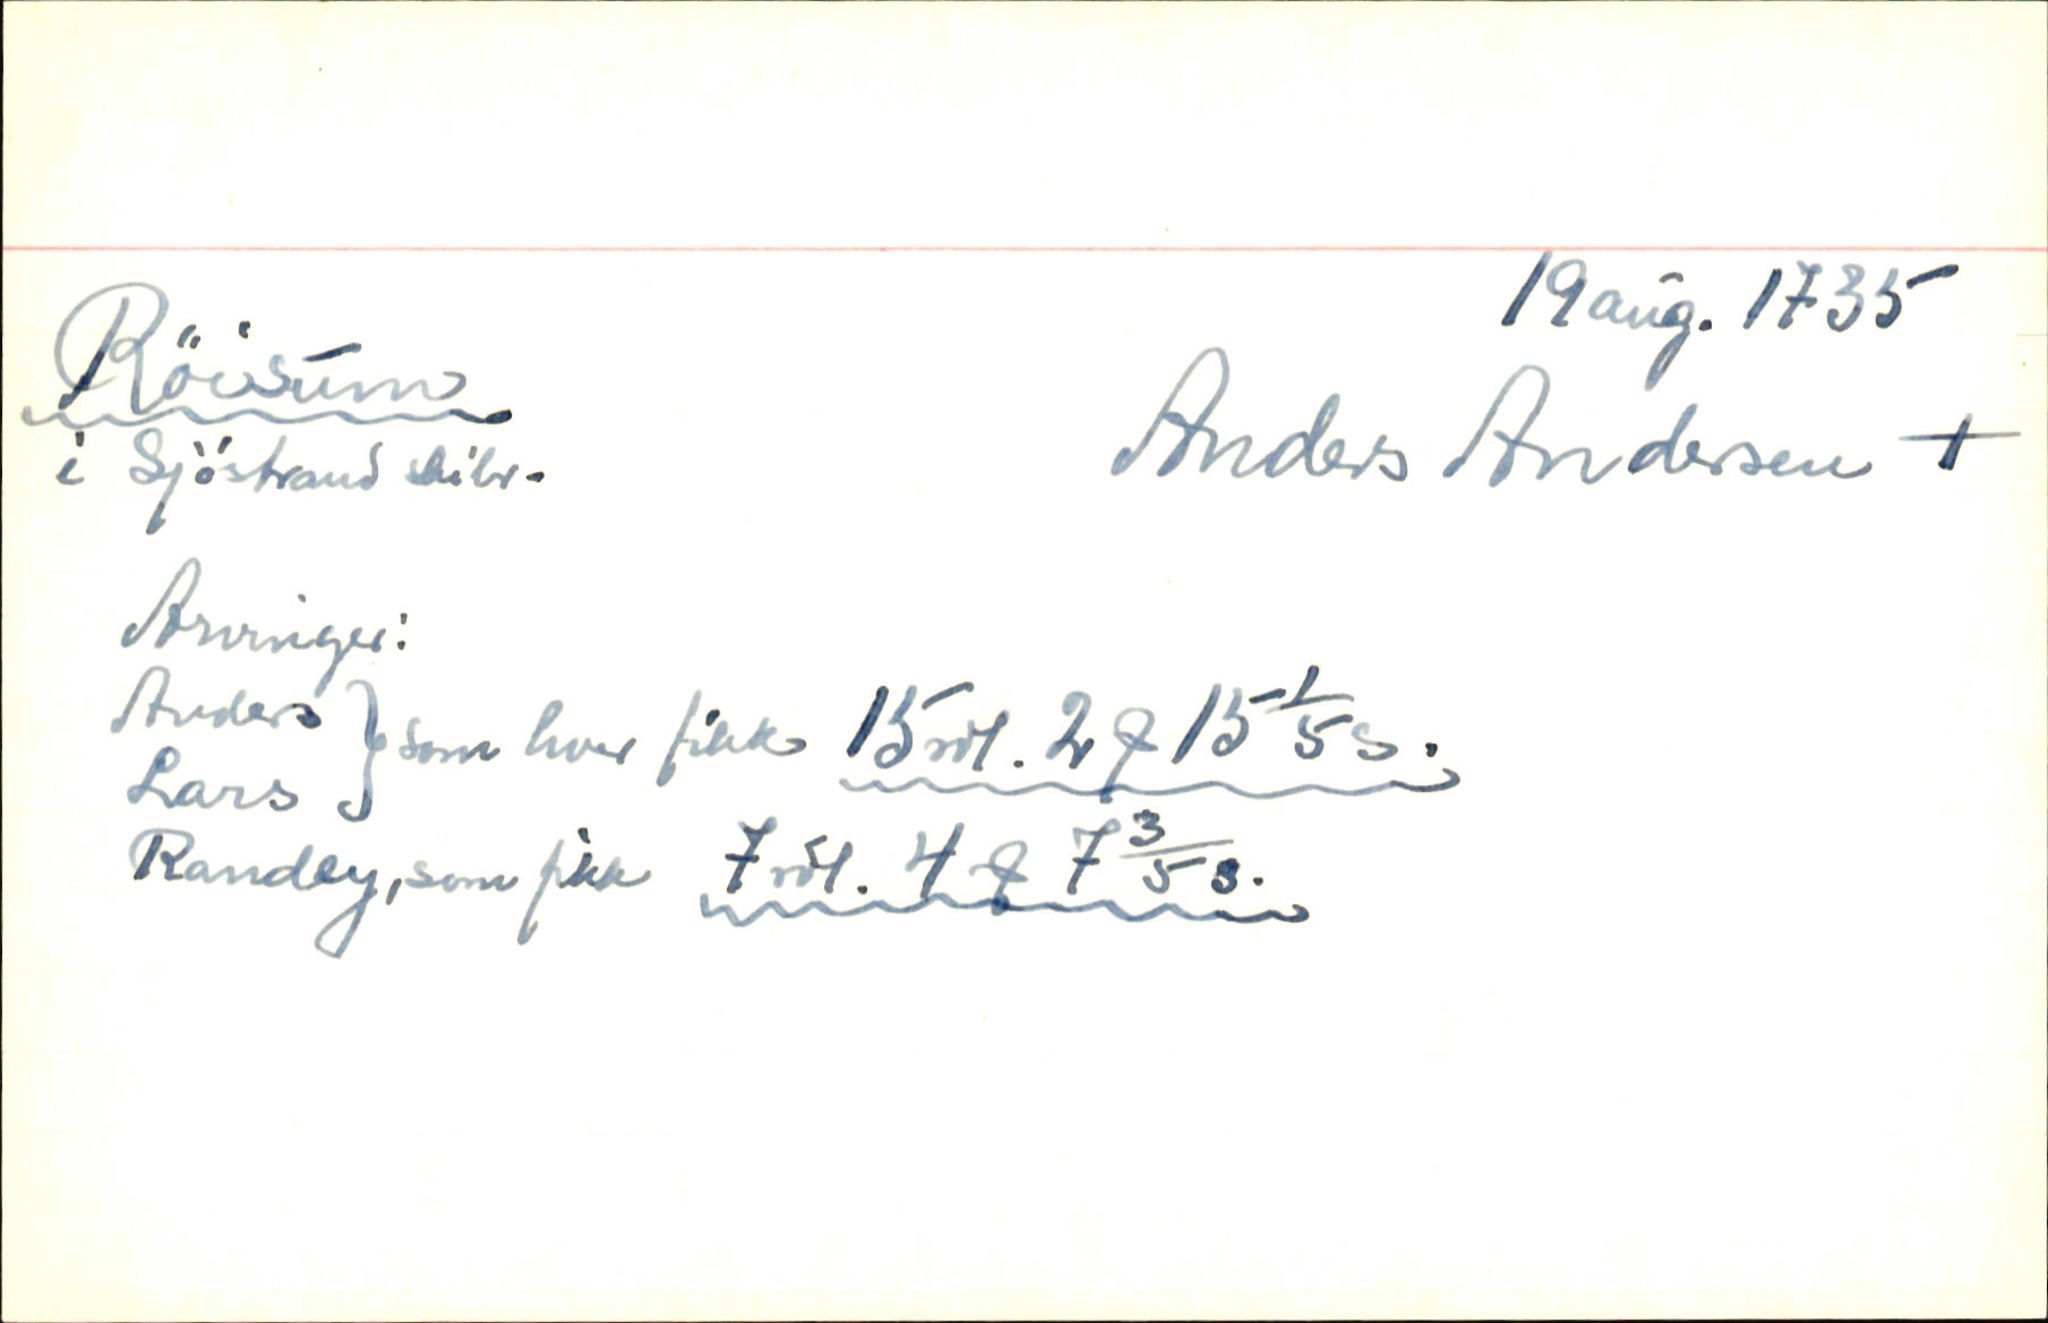 19 aug. 1735
Röisum
Anders Andersen +
i Sjöstrand skibr.
Arvinger:
Anders
Lars } som hver fikk 15 rdl. 2 q 15 1/5 s.
Randey, som fikk 7 rdl. 4 q 7 3/5 s.